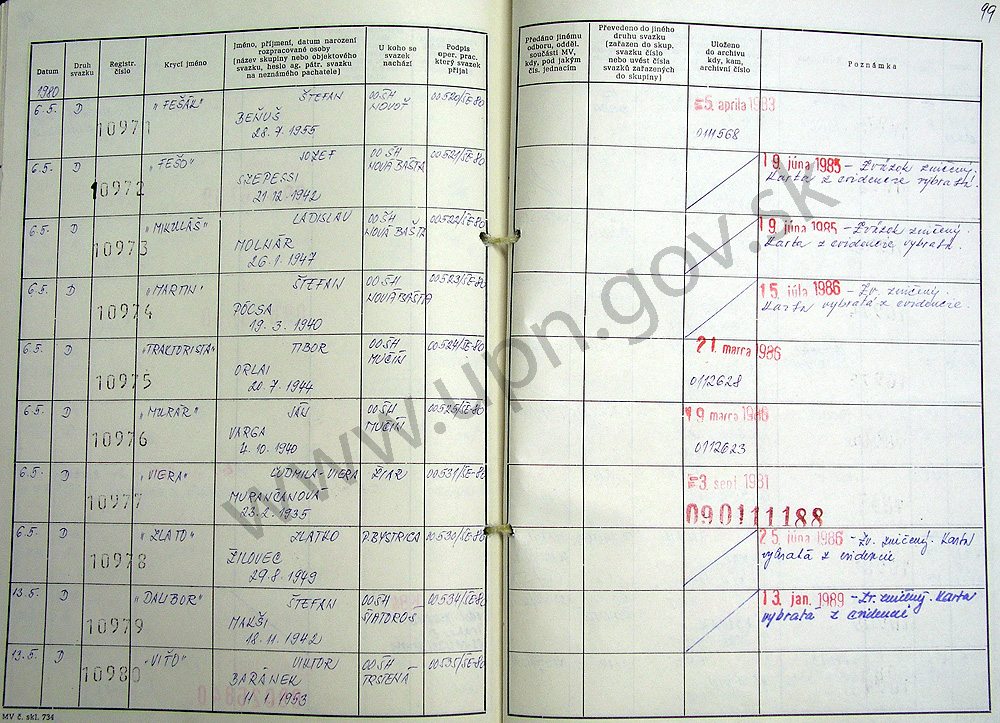 99
Datum
Druh svazku
Registr. číslo
Krycí jméno
Jméno, příjmení, datum narození rozpracované osoby (název skupiny nebo objektového svazku, heslo ag. pátr. svazku na neznámého pachatele)
U koho se svazek nachází
Podpis oper. prac. který svazek přijal
Předáno jinému odboru, odděl. součásti MV, kdy, pod jakým čís. jednacím
Převedeno do jiného druhu svazku (zařazen do skup. svazku číslo nebo uvést čísla svazků zařazených do skupiny)
Uloženo do archivu kdy, kam, archivní číslo
Poznámka
1980
6.5. D 10971 "FEŠÁK" ŠTEFAN BEŇUŠ 28.7.1955 00 ŠH 00520/ŠE-80 5. apríla 1983 0111568
6.5. D 10972 "FEŠO" JOZEF SZEPESSI 21.12.1942 00 ŠH NOVÁ BAŠTA 00521/ŠE-80 19. júna 1985 - Zväzok zničený. Karta z evidencie vybratá.
6.5. D 10973 "MIKULÁŠ" LADISLAV MOLNÁR 26.1.1947 00 ŠH NOVÁ BAŠTA 00522/ŠE-80 19. júna 1985 - Zväzok zničený Karta z evidencie vybratá.
6.5. D 10974 "MARTIN" ŠTEFAN PÓCSA 19.3.1940 00 ŠH NOVÁ BAŠTA 00523/ŠE-80 15. júla 1986 - Zv. zničený. Karta vybratá z evidencie.
6.5. D 10975 "TRAKTORISTA" TIBOR ORLAI 20.7.1944 00 ŠH MUČÍN 00524/ŠE-80 21. marca 1986 0112628
6.5. D 10976 "MURÁR" JÁN VARGA 4.10.1940 00 ŠH MUČÍN 00525/ŠE-80 19 marca 1986 0112623
6.5. D 10977 "VIERA" ĽUDMILA-VIERA MURANČANOVÁ 23.2.1935 Ž/AR 00531/ŠE-80 3. sept. 1981 090111188
6.5. D 10978 "ZLATO" ZLATKO ŽILOVEC 29.8.1949 P.BYSTRICA 00530/ŠE-80 25. júna 1986 - Zv. zničený. Karta vybratá z evidencie
13.5. D 10979 "DALIBOR" ŠTEFAN MAKŠI 18.11.1942 00 ŠH ŠIATOROŠ 00534/ŠE-80 13. jan. 1989 - Zv. zničený. Karta vybratá z evidencie
13.5. D 10980 "VIŤO" VIKTOR BARÁNEK 11.1.1953 00 ŠH TRSTENÁ 00535/ŠE-80
MV č. skl. 734
www.upn.gov.sk